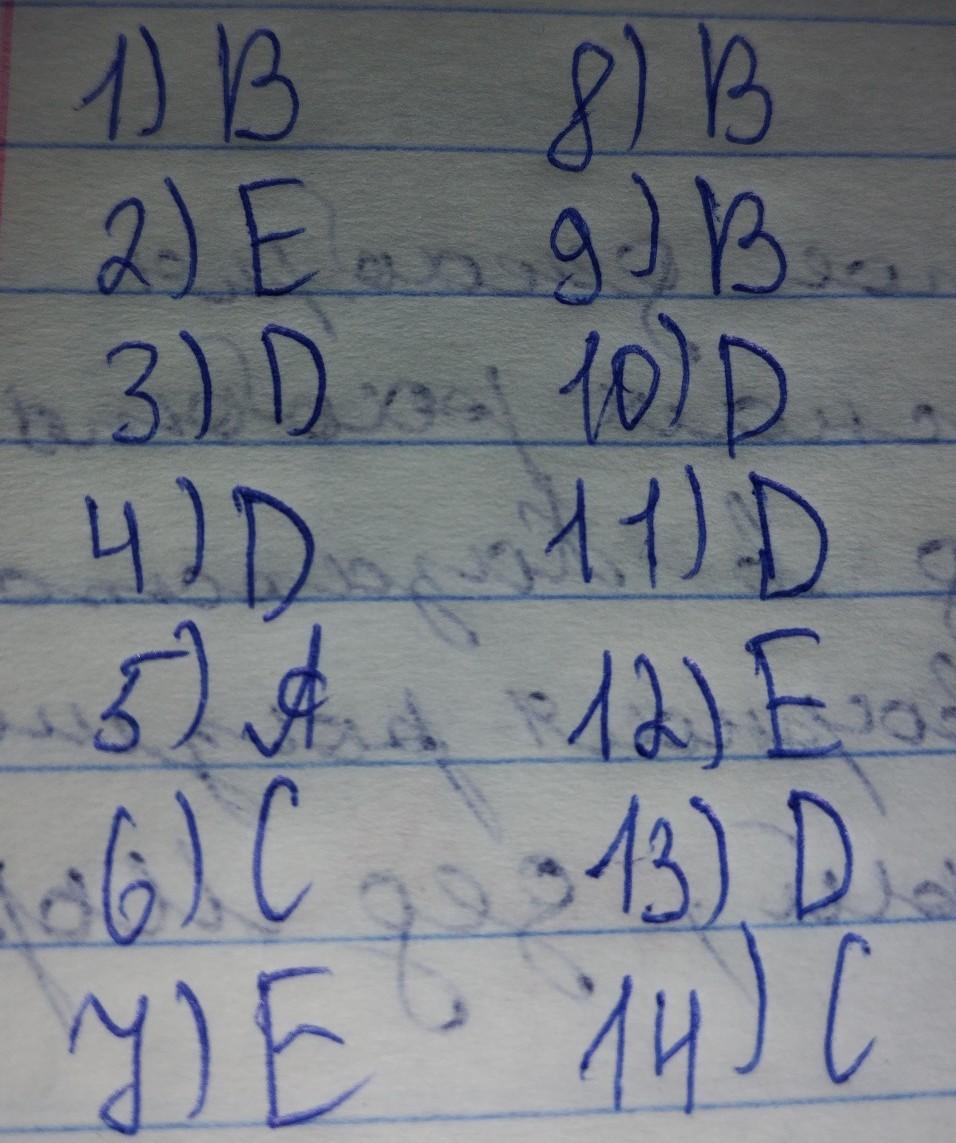 1) B
2) E
3) D
4) D
5) A
6) C
7) E
8) B
9) B
10) D
11) D
12) E
13) D
14) C